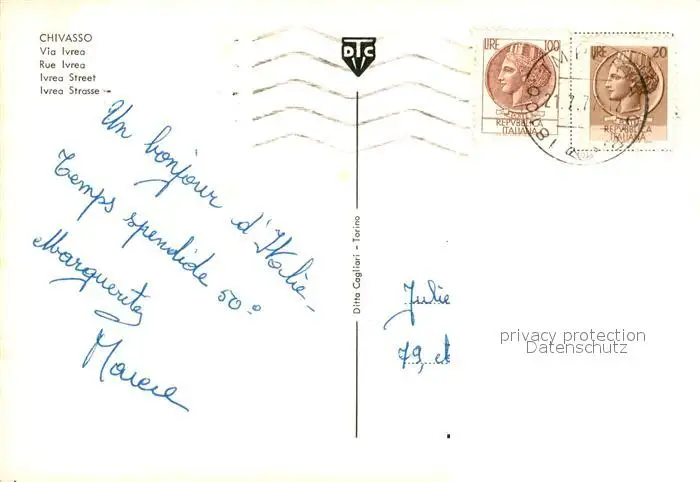 CHIVASSO
Via Ivrea
Rue Ivrea
Ivrea Street
Ivrea Strasse
DTC
LIRE 100
REPVBBLICA
ITALIANA
LIRE 20
REPVBBLICA
ITALIANA
21.7.7
Un bonjour d'Italie -
Temps spendide 50°
Marguerite
Ditta Cagliari - Torino
Julie
79,
privacy protection
Datenschutz